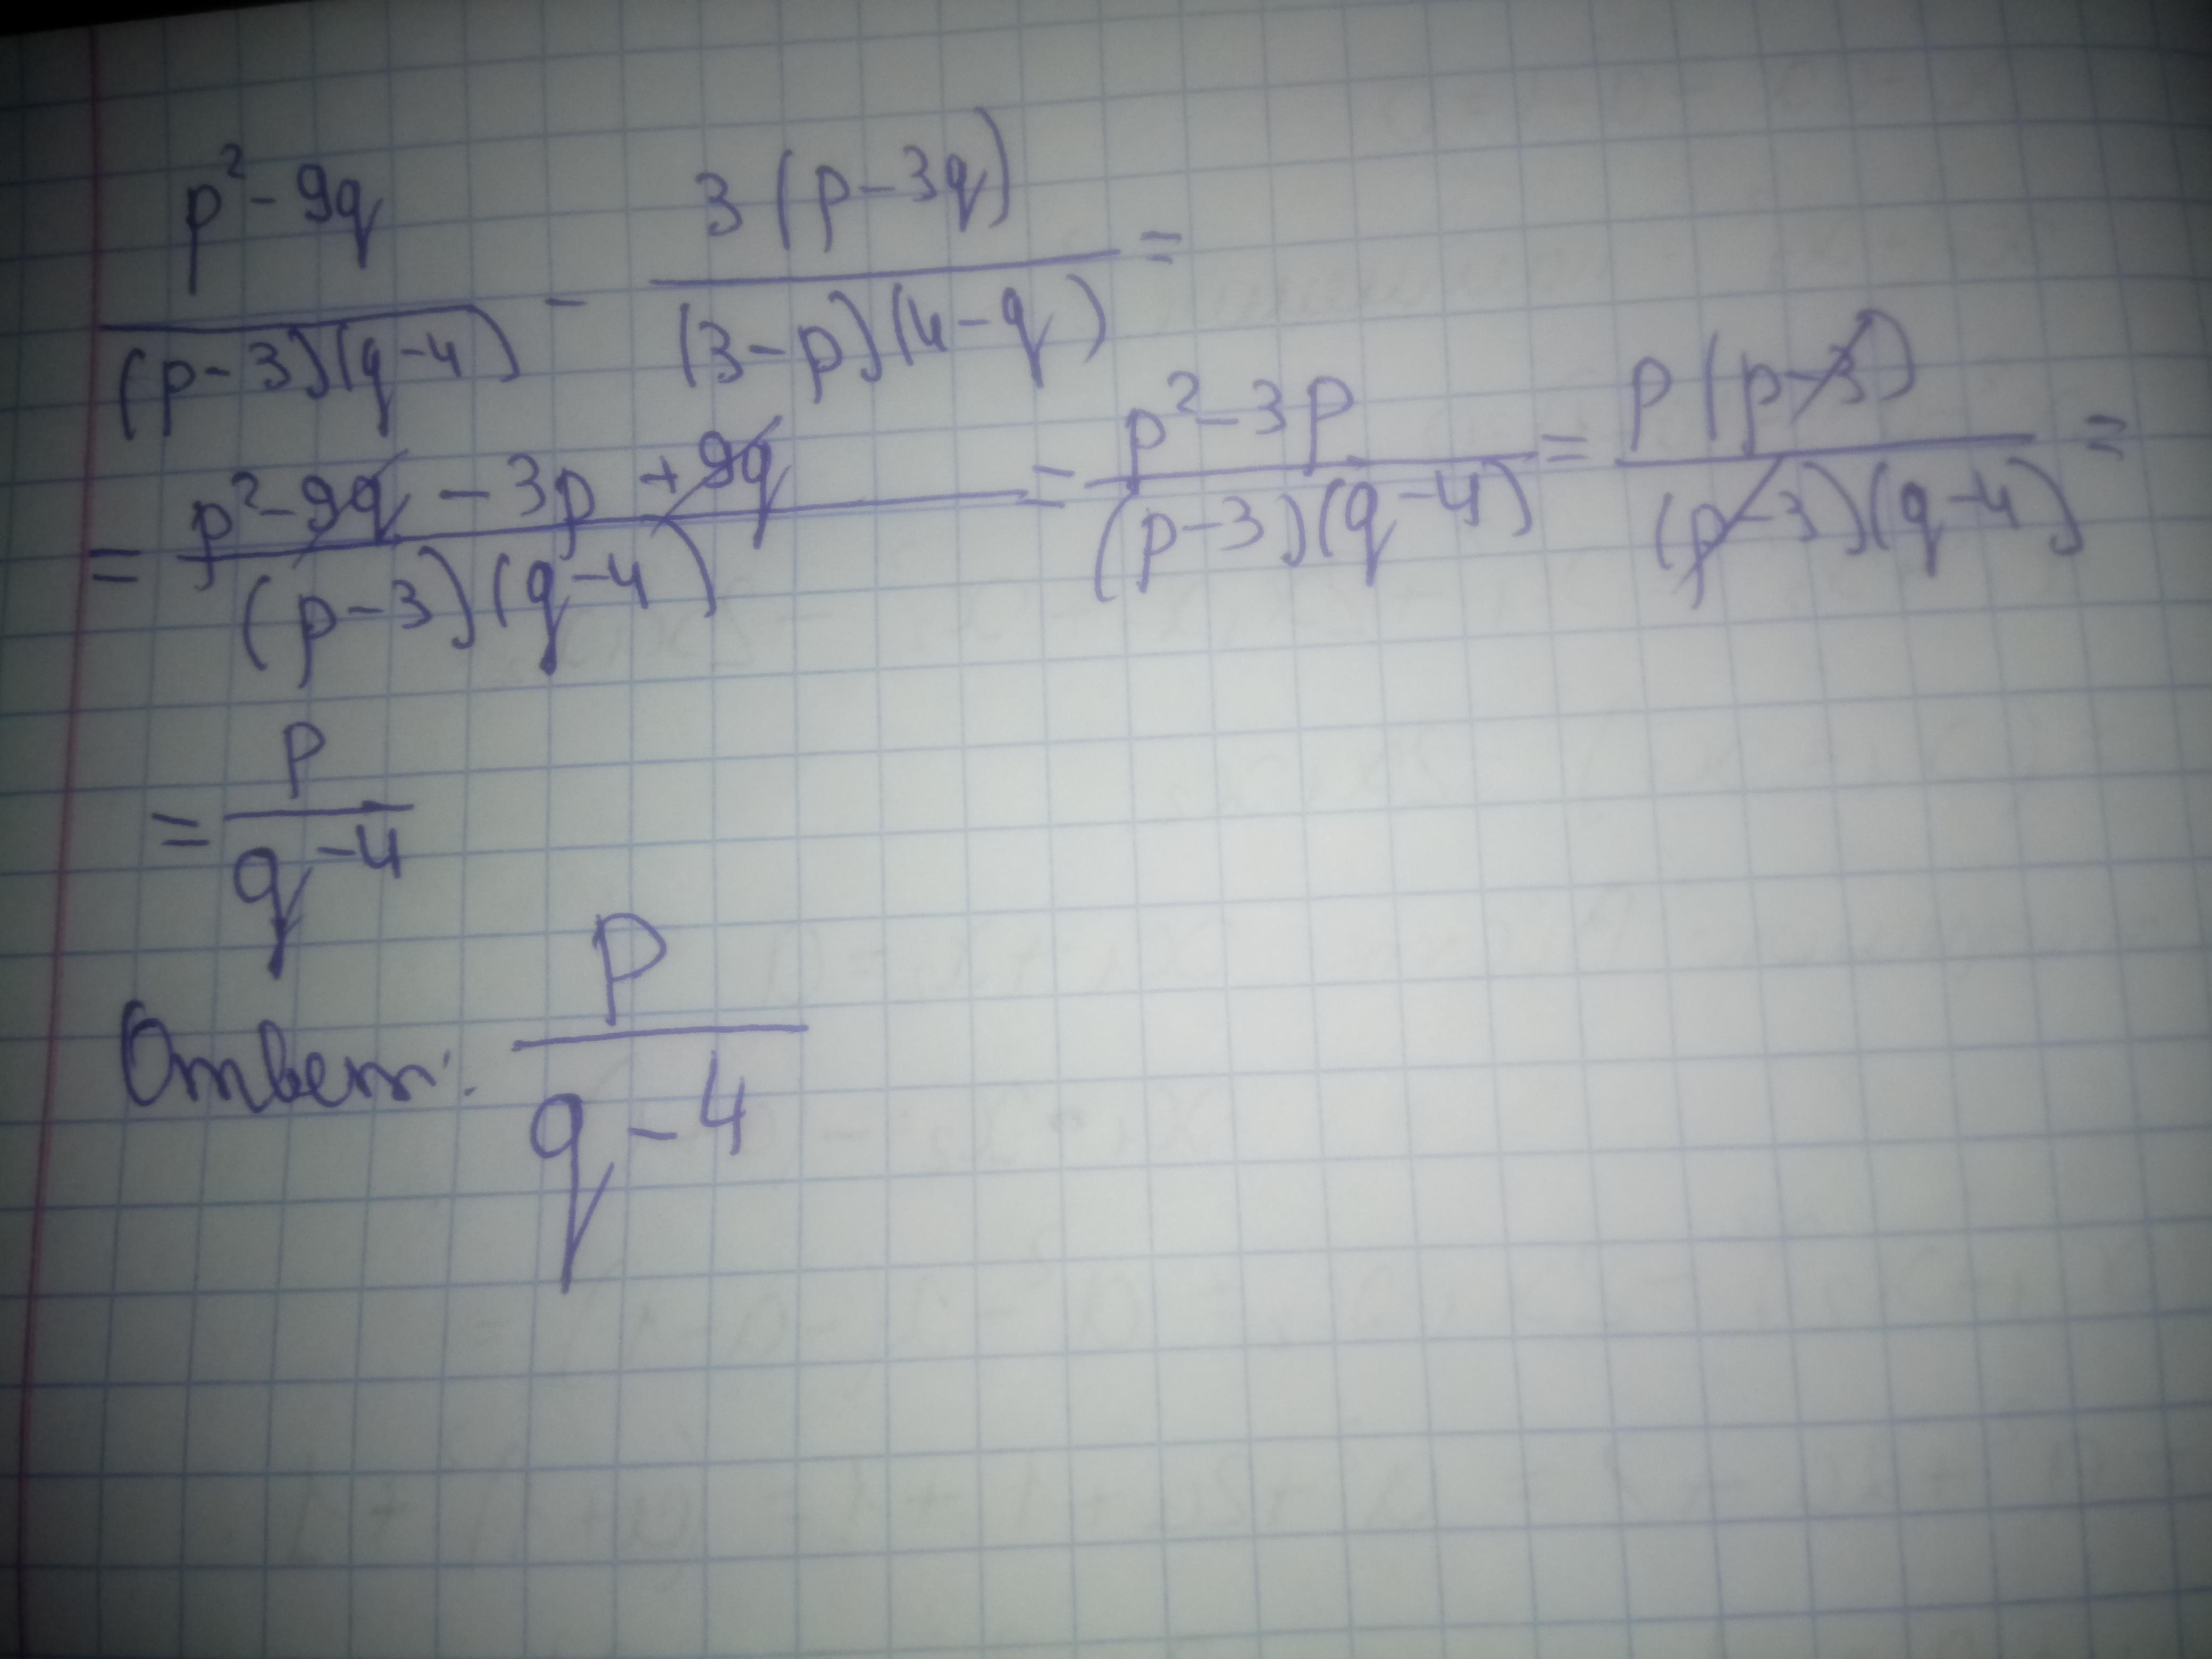 p² - 9q / (p-3)(q-4) - 3(p-3q) / (3-p)(4-q) =
= p² - 9q - 3p + 9q / (p-3)(q-4) = p² - 3p / (p-3)(q-4) = p(p-3) / (p-3)(q-4) =
= p / q-4
Ответ: p / q-4